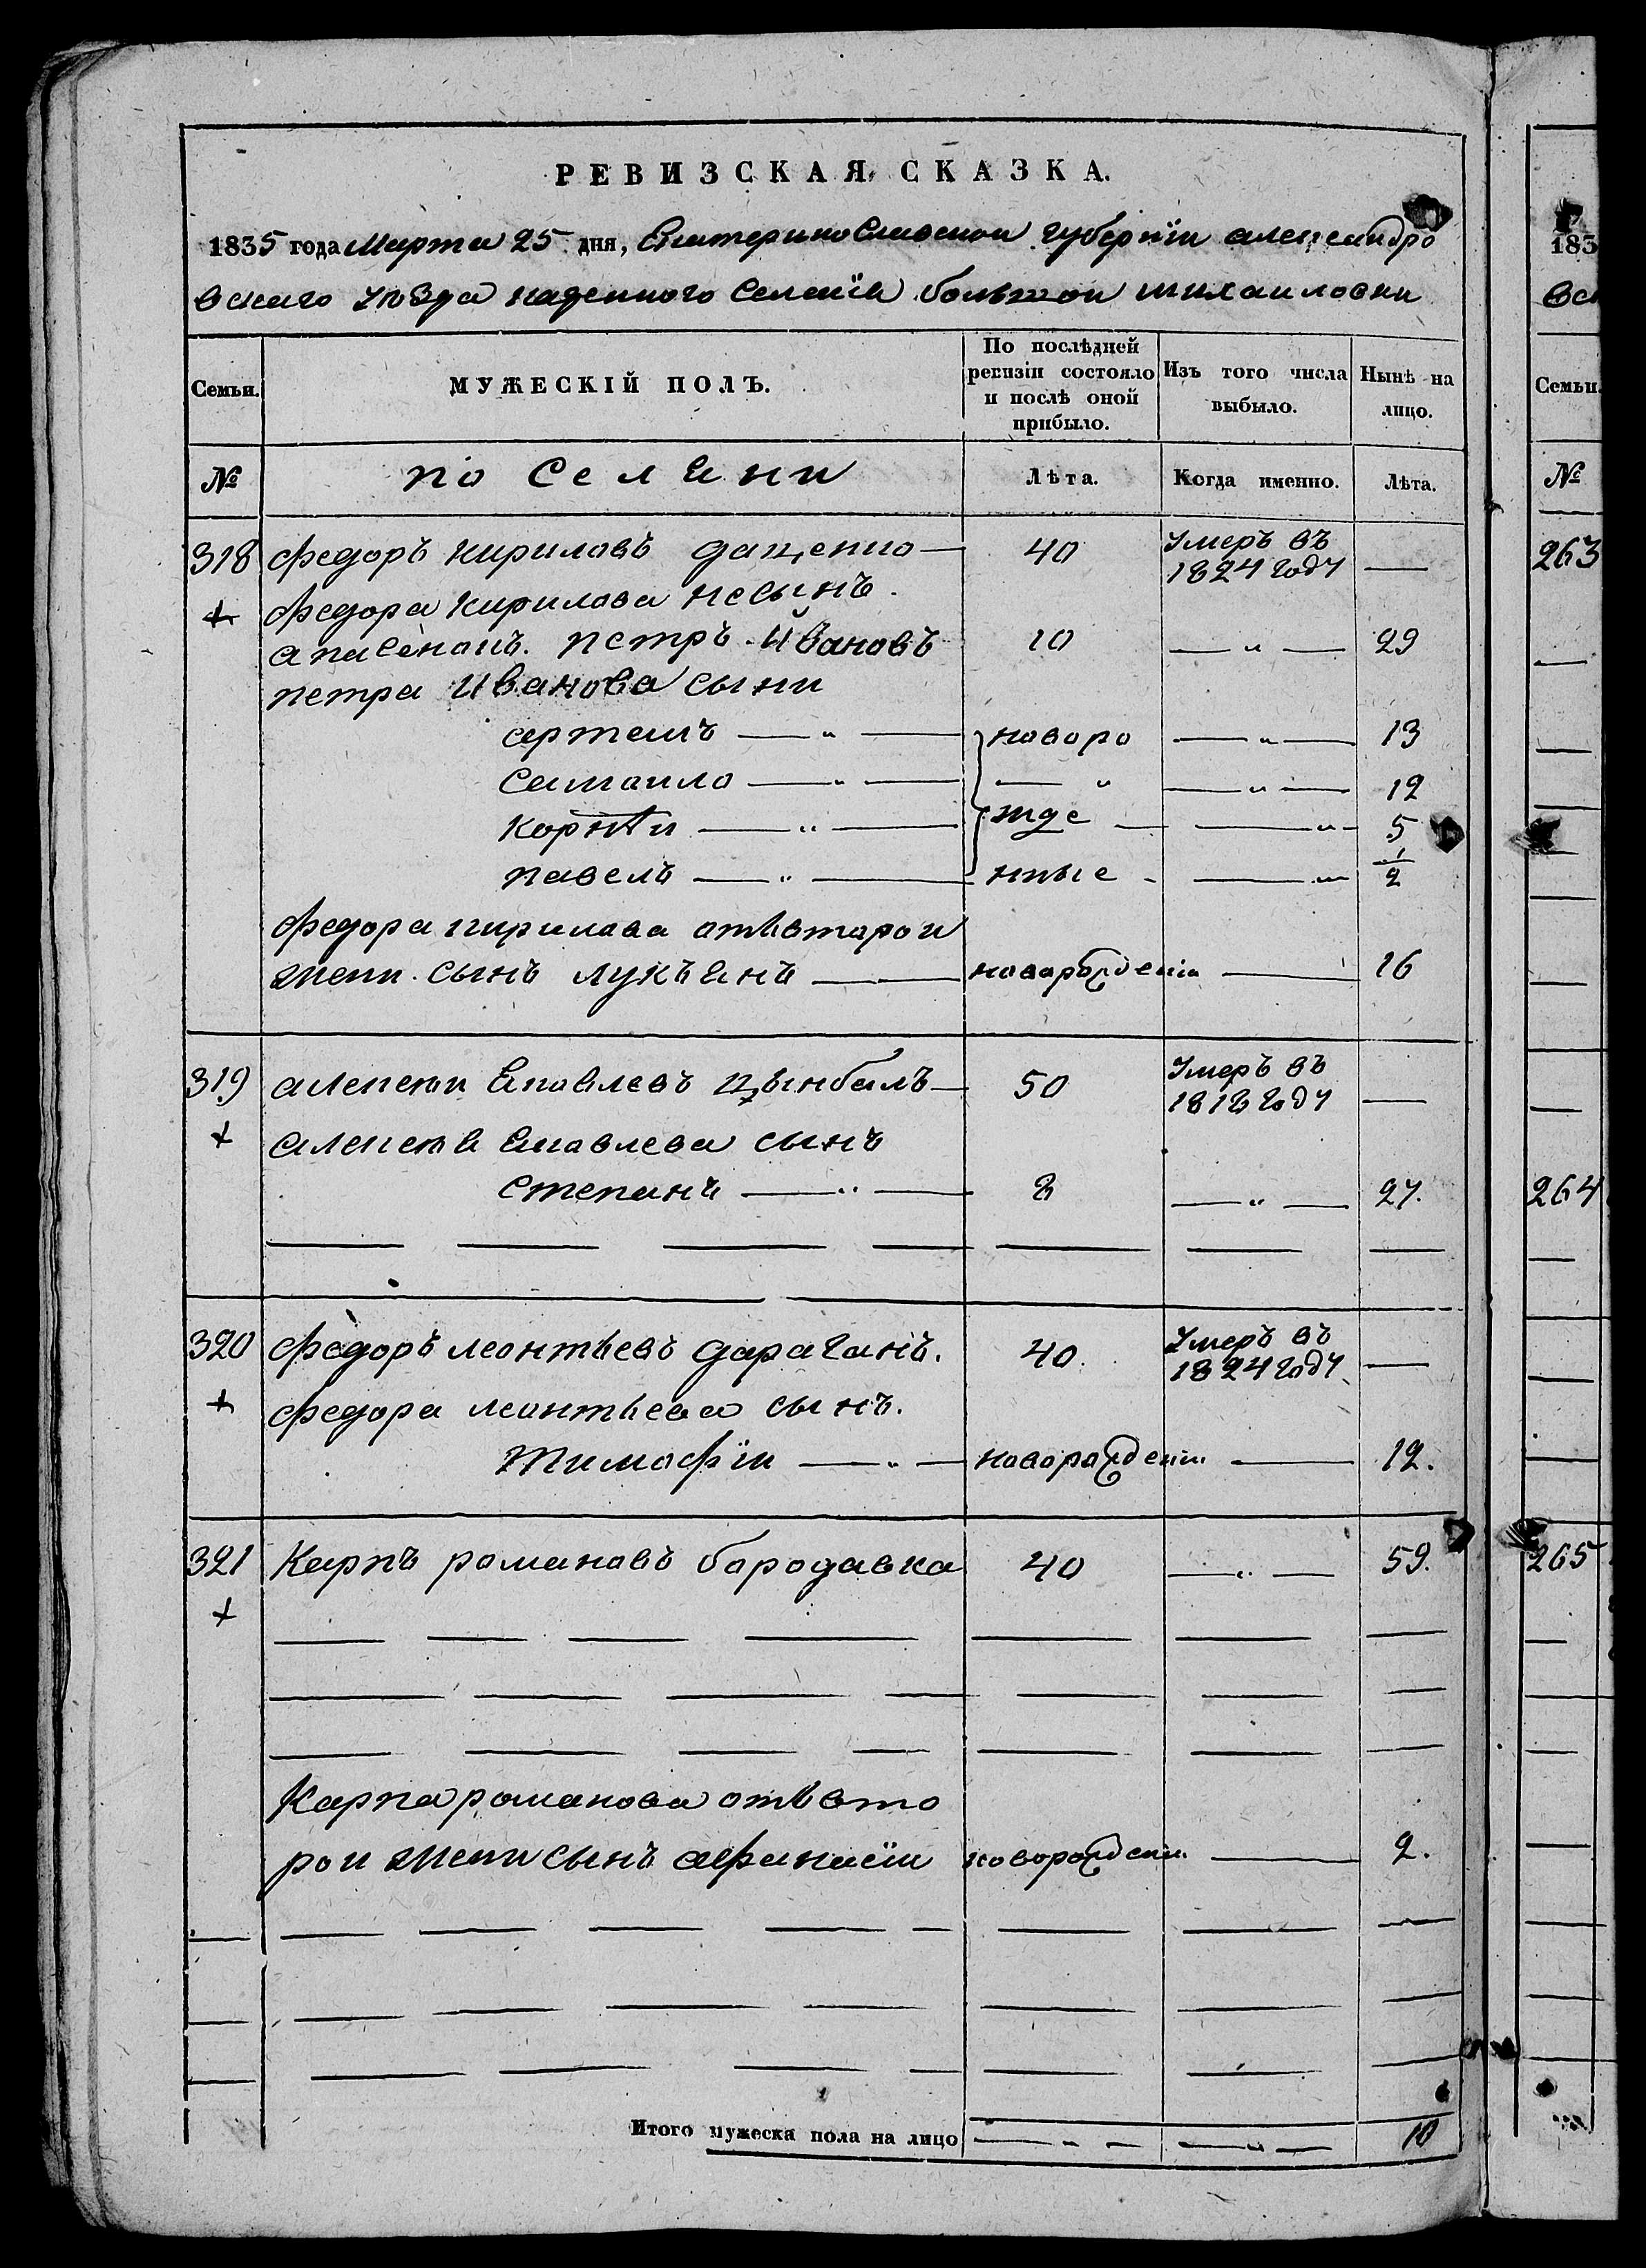 РЕВИЗСКАЯ СКАЗКА.
1835 года Марта 25 дня, Екатеринославской губернїи александро
вскаго уезда казенного селенїя большой михаиловки
Семьи. МУЖЕСКІЙ ПОЛЪ. По послѣдней ревизіи состояло и послѣ оной прибыло. Изъ того числа выбыло. Нынѣ на лицо.
№ поселяни Лѣта. Когда именно. Лѣта.
318 федоръ кириловъ даценко — 40 Умеръ въ 1824 году —
федора кирилова
петръ Ивановъ 10 — „ — 29
петра Иванова сыни
артемъ — „ — новоро — „ — 13
самоило — „ — — „ — „ — 12
корнѣи — „ — жде — — „ — 5
павелъ — „ — нные - — „ — 1/2
федора кирилова отвторои
жени сынъ лукъянъ — новорожденн — 16
319 алексеи Яковлевъ цымбалъ — 50 Умеръ въ 1818 году —
+ алексея Яковлева сынъ
степанъ — „ — 8 — „ — 27.
320 федоръ леонтьевъ дараганъ. 40. Умеръ въ 1824 году —
+ федора леонтьева сынъ.
тимофїи — „ — новорожденн — 12.
321 Карпъ романовъ бородавка 40 — „ — 59.
+
Карпа романова отвто
рои жени сынъ афанасїи новорожденн — 2.
Итого мужеска пола на лицо — „ — — „ — 10
183
вск
Семьи.
№
263
264
265